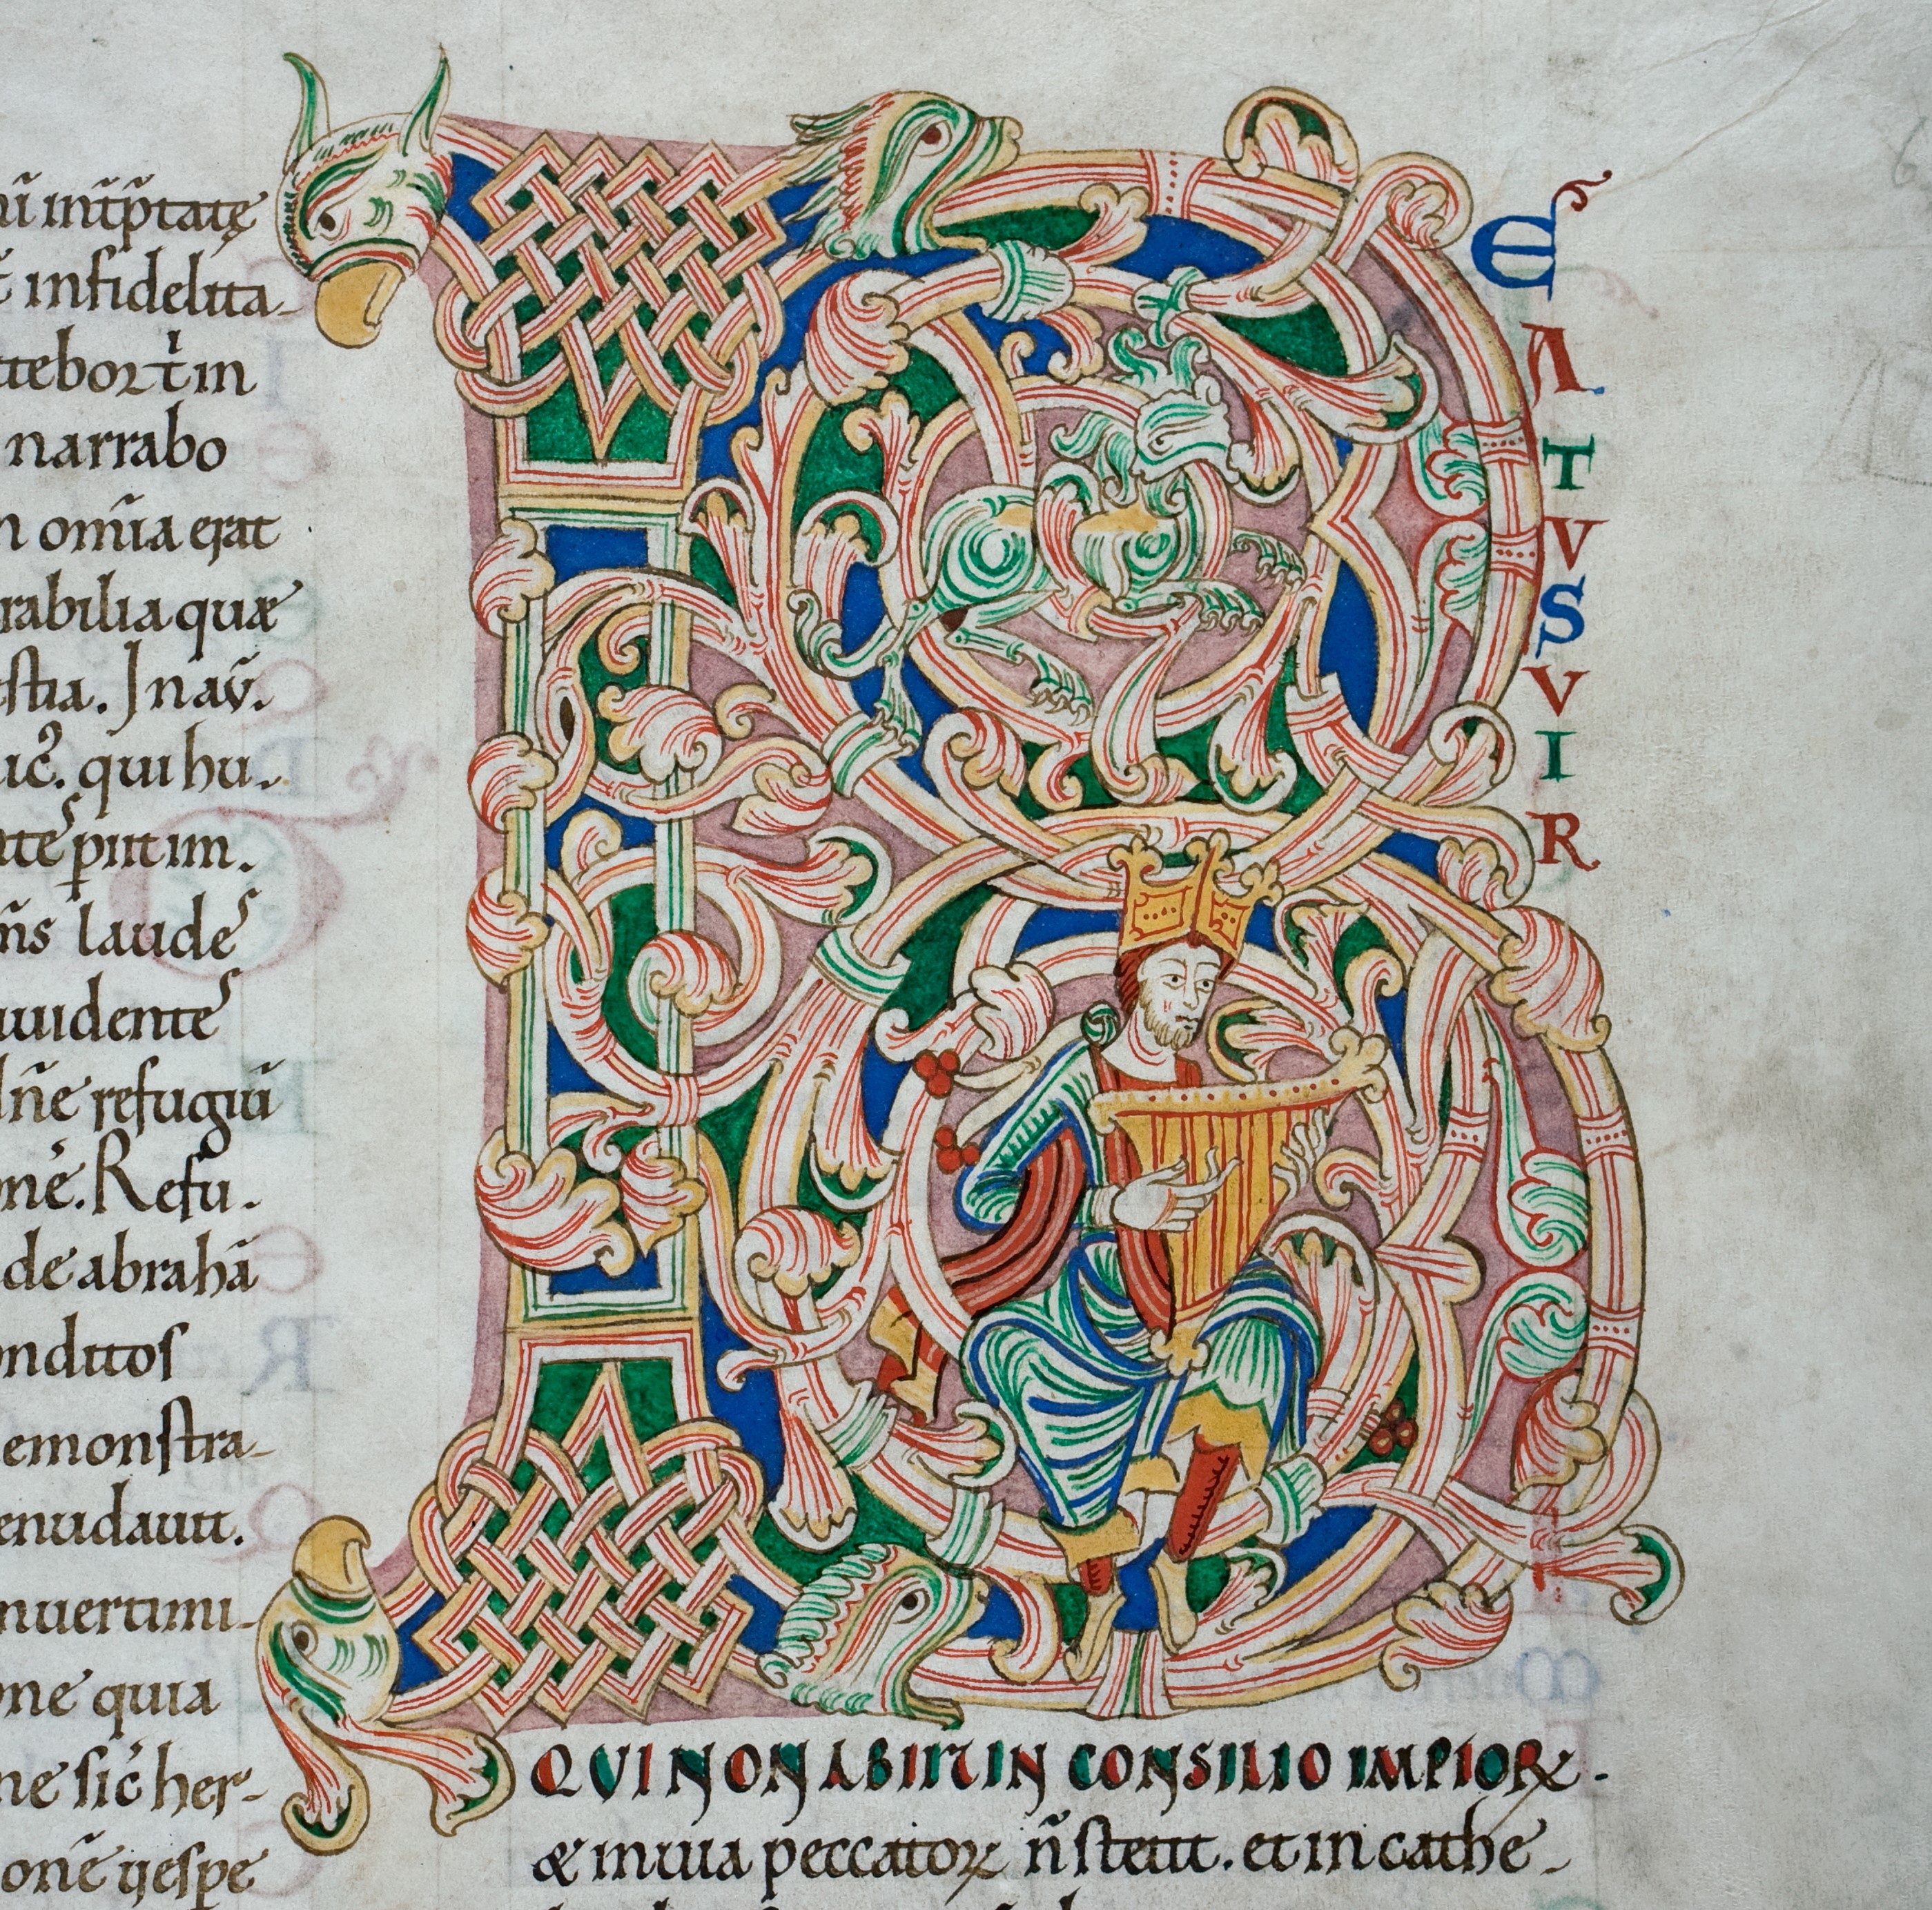 nū int̄p̄tatę
t̄ infidelita-
ttebor t̄ in
narrabo
n om̄ia erat
rabilia quæ
estia. In aū.
uc̄. qui hu-
ate pirit im.
m̄s laude
uuidente
dn̄e refugiū
onē. Refu-
de abrahā
onditos
emonstra-
enudauit.
nuertimi-
one quia
ne sic̄ her-
onē uespe
BEATVS VIR
QVI NON ABIIT IN CONSILIO IMPIOꝜ.
& in uia peccatoꝝ n̄ stetit. et in cathe-